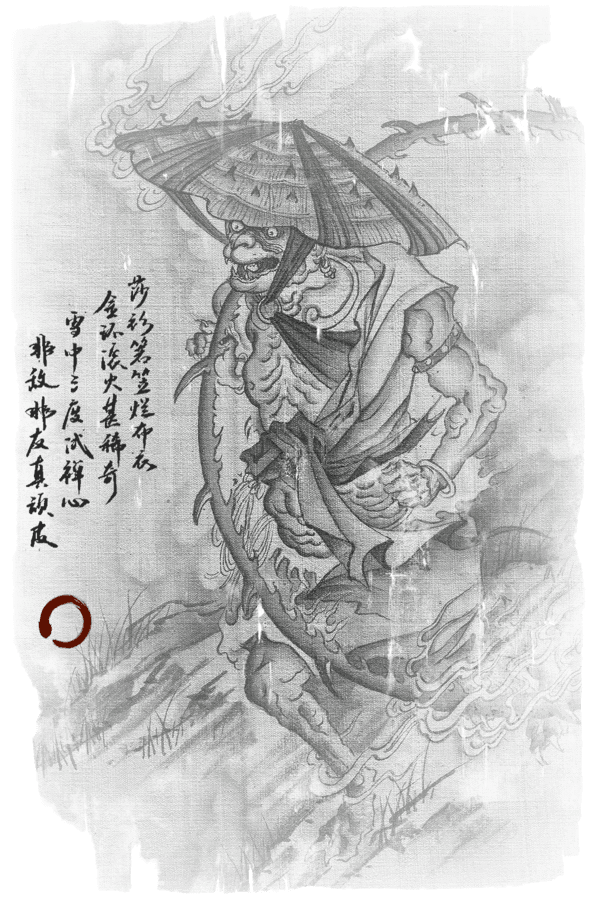 莎衫箬笠烂布衣
金环滚火甚稀奇
雪中三度试禅心
非敌非友真顽皮